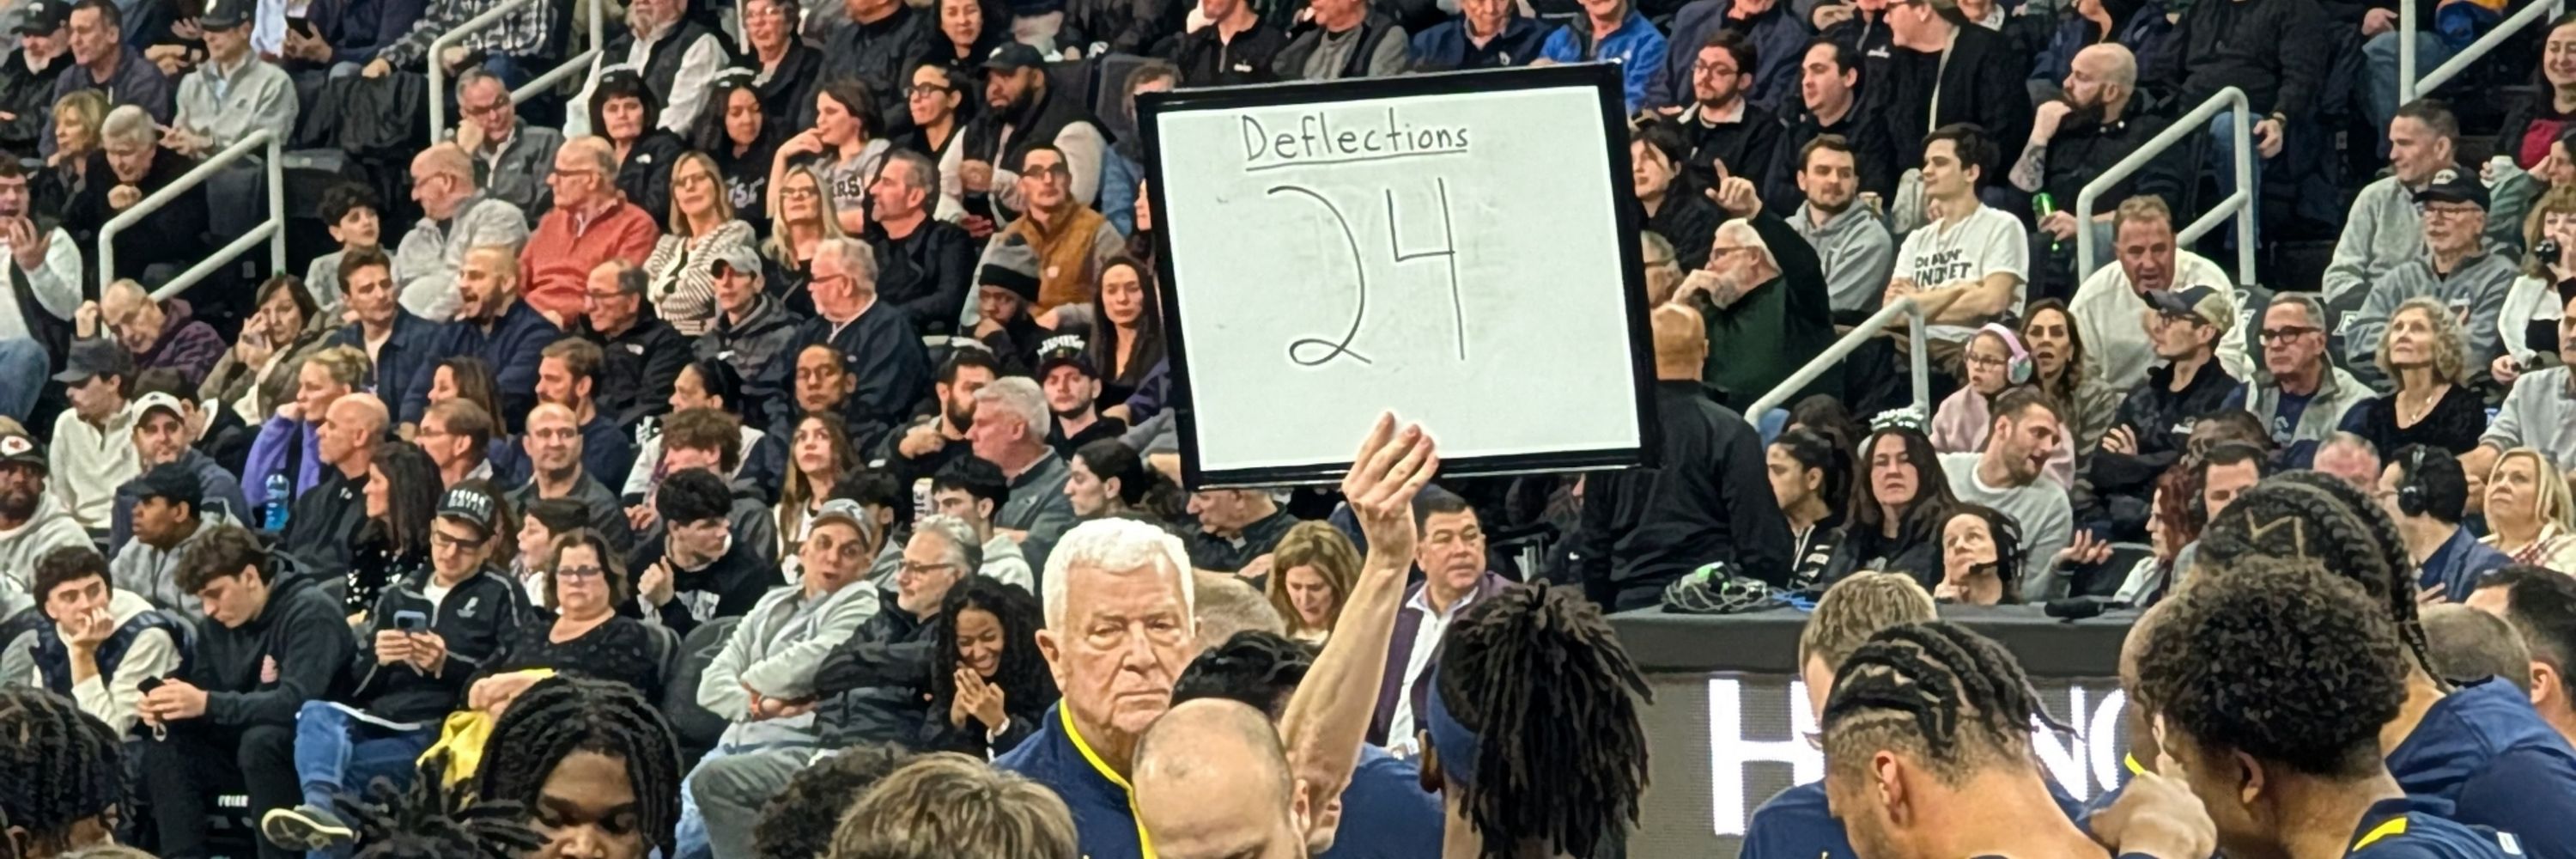 Deflections
24